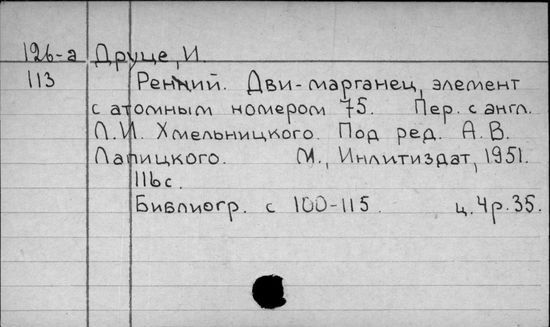 126-а Друце, И.
113 Рений. Дви-марганец, элемент
с атомным номером 75. Пер. с англ.
Л.И. Хмельницкого. Под ред. А.В.
Лапицкого. М., Инлитиздат, 1951.
116с.
Библиогр. с 100-115. ц.4р.35.